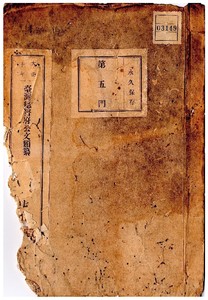 03149
永久保存
第五門
臺灣總督府公文類纂